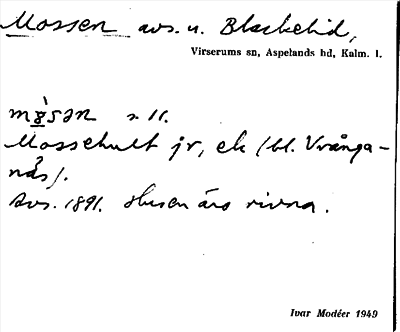 Mossen avs. u. Blackelid,
Virserums sn, Aspelands hd, Kalm. l.
s. 11.
Mossehult jr, ek (bl. Vrånga-
nås).
Avs. 1891. Husen äro rivna.
Ivar Modéer 1949